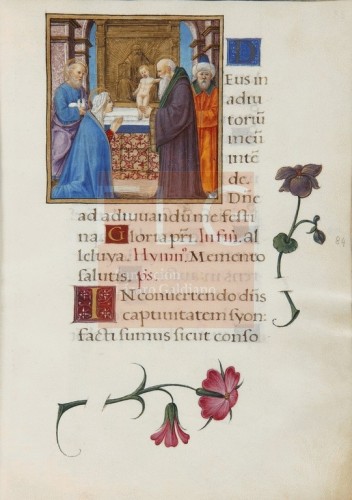 Deus in
adiu
toriū
meū
inte
de. Dñe
ad adiuuandū me festi
na. Gloria pr̄i. Inuit̄. al
leluya. Hymn⁹. Memento
salutis. p̄s.
IN conuertendo dñs
captiuitatem syon:
facti sumus sicut conso
84